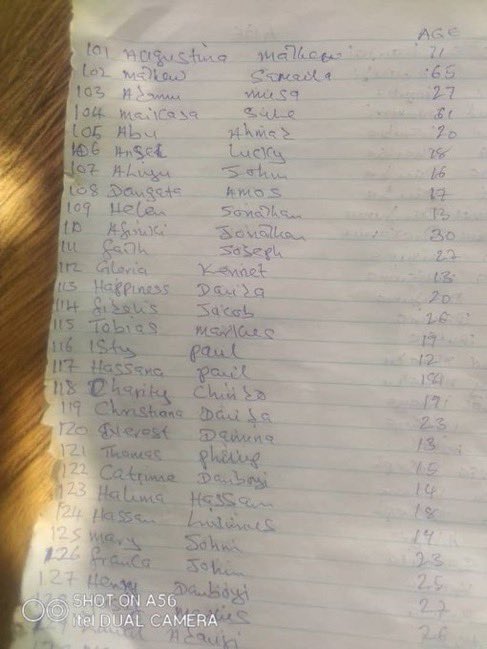 AGE
101 Augustina Mathew 21
102 Mathew Ismaila 65
103 Adamu musa 27
104 maikasa Sule 61
105 Abu Ahmad 20
106 Angel Lucky 18
107 Ahigu John 16
108 Dangata AMOS 17
109 Helen Jonathan 13
110 Afiniki Jonathan 30
111 faith Joseph 27
112 Gloria Kennet 13
113 Happiness Dauda 20
114 fidelis Jacob 26
115 Tobias markus 19
116 Isty paul 12
117 Hassana paul
118 Charity Chindo 19
119 Christiana Dauda 23
120 Everest Damina 13
121 Thomas philip 15
122 Catrina Danboyi 14
123 Halima Hassan 18
124 Hassan
125 mary John 19
126 franca John 23
127 Henry Danboyi 25
27
26
SHOT ON A56
itel DUAL CAMERA